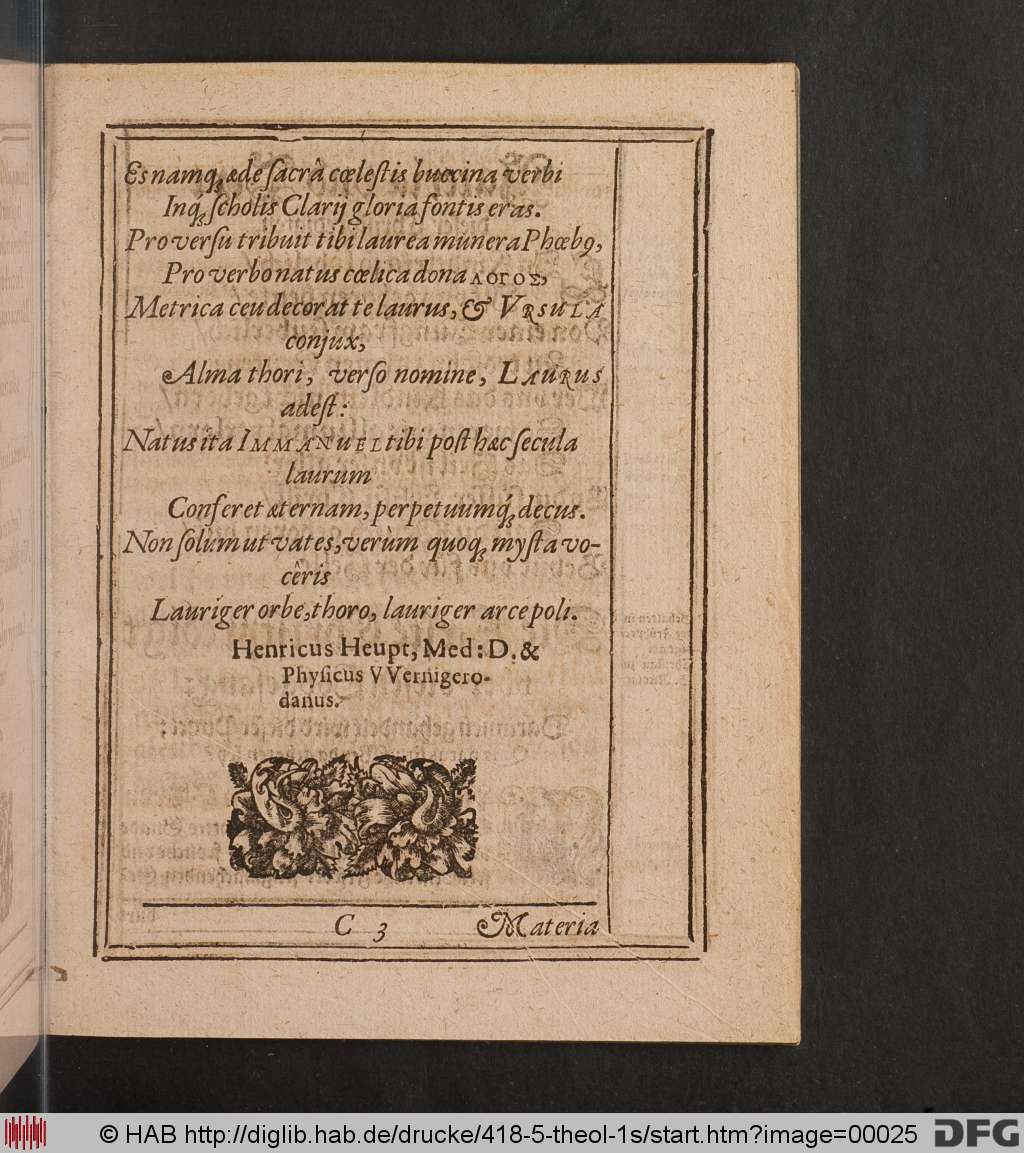 Es namq́; æde sacrâ cœlestis buccina verbi
Inq́; scholis Clarij gloria fontis eras.
Pro versu tribuit tibi laurea munera Phœbꝰ,
Pro verbo natus cœlica dona ΛΟΓΟΣ,
Metrica ceu decorat te laurus, & VRSULA
conjux,
Alma thori, verso nomine, LAURUS
adest:
Natus ita IMMANUEL tibi post hæc secula
laurum
Conferet æternam, perpetuumq́; decus.
Non solùm ut vates, verùm quoq; mysta vo-
cêris
Lauriger orbe, thoro, lauriger arce poli.
Henricus Heupt, Med: D. &
Physicus VVernigero-
danus.
C 3 Materia
© HAB http://diglib.hab.de/drucke/418-5-theol-1s/start.htm?image=00025 DFG